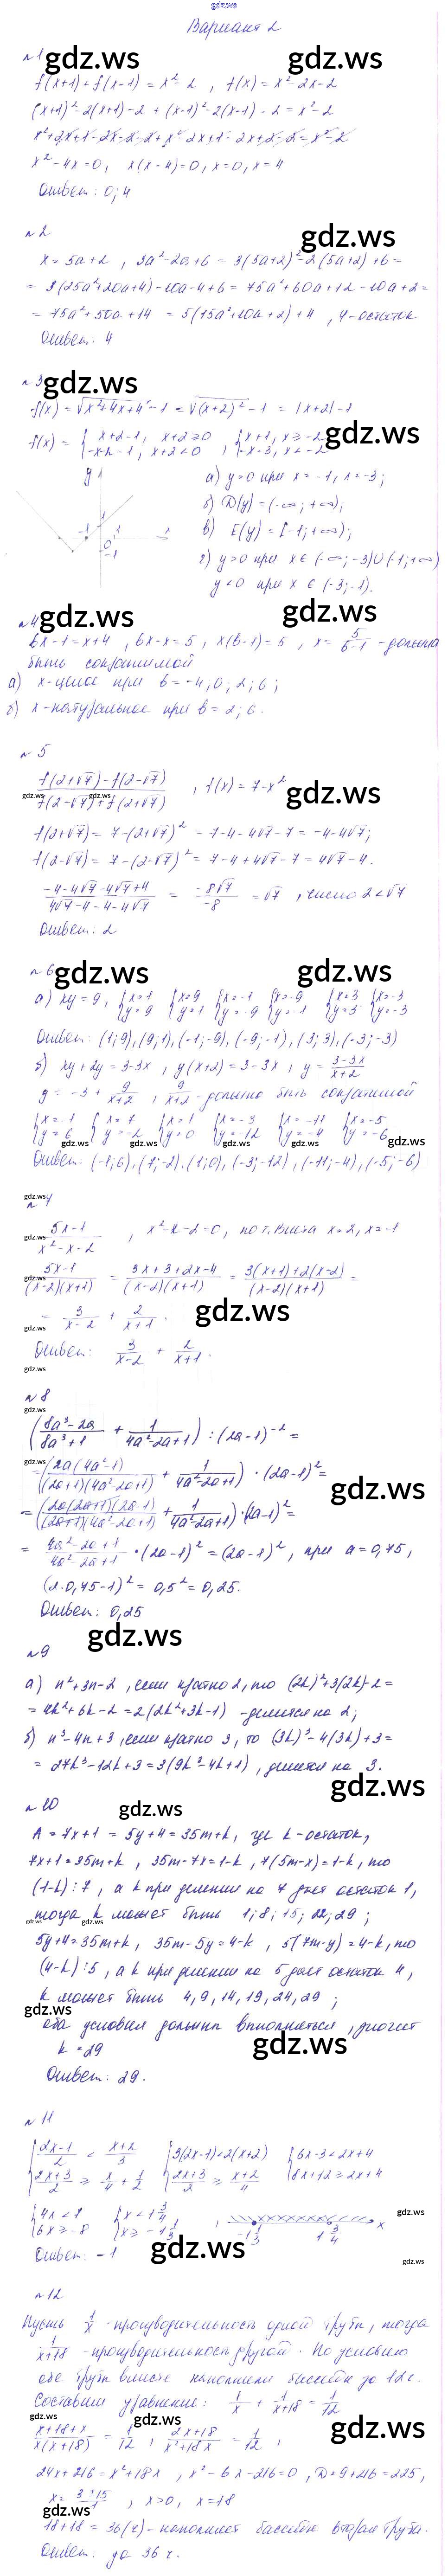 gdz.ws
Вариант 2
№1 gdz.ws gdz.ws
f(x+1)+f(x-1) = x²-2 , f(x) = x²-2x-2
(x+1)²-2(x+1)-2 + (x-1)²-2(x-1)-2 = x²-2
x²+2x+1-2x-2-2+x²-2x+1-2x+2-2=x²-2
x²-4x=0, x(x-4)=0, x=0, x=4
Ответ: 0; 4
№2 gdz.ws
x = 5a+2 , 3a²-2a+6 = 3(5a+2)²-2(5a+2)+6=
= 3(25a²+20a+4)-10a-4+6 = 75a²+60a+12-10a+2=
= 75a²+50a+14 = 5(15a²+10a+2)+4 , 4-остаток
Ответ: 4
№3 gdz.ws
f(x) = √x²+4x+4 -1 = √(x+2)² -1 = |x+2|-1
f(x) = { x+2-1, x+2≥0 , { x+1, x≥-2 gdz.ws
-x-2-1, x+2<0 -x-3, x<-2
y а) y=0 при x=-1, x=-3;
б) D(y)=(-∞;+∞);
в) E(y)=[-1;+∞);
г) y>0 при x∈(-∞;-3)∪(-1;+∞)
y<0 при x∈(-3;-1).
№4 gdz.ws gdz.ws
bx-1=x+4 , bx-x=5 , x(b-1)=5 , x= 5/(b-1) - должна
быть сократимой
а) x-целое при b=-4; 0; 2; 6;
б) x-натуральное при b=2; 6.
№5
(f(2+√7)-f(2-√7))/(f(2-√7)+f(2+√7)) , f(x)=7-x² gdz.ws
gdz.ws gdz.ws
f(2+√7)= 7-(2+√7)² = 7-4-4√7-7 = -4-4√7;
f(2-√7)= 7-(2-√7)² = 7-4+4√7-7 = 4√7-4.
(-4-4√7-4√7+4)/(4√7-4-4-4√7) = -8√7/-8 = √7 , число 2<√7
Ответ: 2
№6 gdz.ws gdz.ws
а) xy=9, {x=1 y=9 {x=9 y=1 {x=-1 y=-9 {x=-9 y=-1 {x=3 y=3 {x=-3 y=-3
Ответ: (1;9),(9;1),(-1;-9),(-9;-1),(3;3),(-3;-3)
б) xy+2y=3-3x , y(x+2)=3-3x , y= (3-3x)/(x+2)
y = -3 + 9/(x+2) , 9/(x+2) - должно быть сократимой
{x=-1 y=6 {x=7 y=-2 {x=1 y=0 {x=-3 y=-12 {x=-11 y=-4 {x=-5 y=-6
gdz.ws gdz.ws gdz.ws gdz.ws
Ответ: (-1;6),(7;-2),(1;0),(-3;-12),(-11;-4),(-5;-6)
gdz.ws
№7
(5x-1)/(x²-x-2) , x²-x-2=0, по т. Виета x=2, x=-1
gdz.ws
(5x-1)/((x-2)(x+1)) = (3x+3+2x-4)/((x-2)(x+1)) = (3(x+1)+2(x-2))/((x-2)(x+1)) =
gdz.ws
= 3/(x-2) + 2/(x+1) . gdz.ws
gdz.ws
Ответ: 3/(x-2) + 2/(x+1) .
gdz.ws
№8
gdz.ws
((8a³-2a)/(8a³+1) + 1/(4a²-2a+1)) : (2a-1)⁻² =
gdz.ws
=((2a(4a²-1))/((2a+1)(4a²-2a+1)) + 1/(4a²-2a+1)) · (2a-1)²=
gdz.ws
=((2a(2a+1)(2a-1))/((2a+1)(4a²-2a+1)) + 1/(4a²-2a+1))·(2a-1)²=
= (4a²-2a+1)/(4a²-2a+1) · (2a-1)² = (2a-1)², при a=0,75,
(2·0,75-1)² = 0,5² = 0,25.
Ответ: 0,25
gdz.ws
№9
а) n²+3n-2 , если кратно 2, то (2k)²+3(2k)-2=
= 4k²+6k-2 = 2(2k²+3k-1) -делится на 2;
б) n³-4n+3, если кратно 3, то (3k)³-4(3k)+3=
= 27k³-12k+3=3(9k³-4k+1), делится на 3.
gdz.ws
№10 gdz.ws
A = 7x+1 = 5y+4 = 35m+k, где k-остаток,
7x+1=35m+k , 35m-7x=1-k , 7(5m-x)=1-k, то
(1-k)⋮7 , а k при делении на 7 дает остаток 1,
тогда k может быть 1; 8; 15; 22; 29 ;
gdz.ws gdz.ws
5y+4=35m+k, 35m-5y=4-k , 5(7m-y)=4-k, то
(4-k)⋮5 , а k при делении на 5 дает остаток 4,
k может быть 4, 9, 14, 19, 24, 29 ;
gdz.ws
оба условия должны выполняться, значит
k=29 gdz.ws
Ответ: 29.
№11
{(2x-1)/2 < (x+2)/3 {3(2x-1)<2(x+2) {6x-3<2x+4
(2x+3)/2 ≥ x/4 + 1/2 (2x+3)/2 ≥ (x+2)/4 8x+12≥2x+4
{4x<7 {x<1 3/4 gdz.ws
6x≥-8 x≥-1 1/3 , -1 1/3 1 3/4 x
Ответ: -1 gdz.ws gdz.ws
№12
Пусть 1/x - производительность одной трубы, тогда
1/(x+18) - производительность другой. По условию
обе трубы вместе наполнили бассейн за 12ч.
Составим уравнение: 1/x + 1/(x+18) = 1/12
gdz.ws gdz.ws
(x+18+x)/(x(x+18)) = 1/12 , (2x+18)/(x²+18x) = 1/12 , gdz.ws
24x+216 = x²+18x , x²-6x-216=0 , D=9+216=225,
x= (3±15)/1 , x>0, x=18
gdz.ws
18+18=36(ч)-наполняет бассейн вторая труба.
Ответ: за 36 ч.